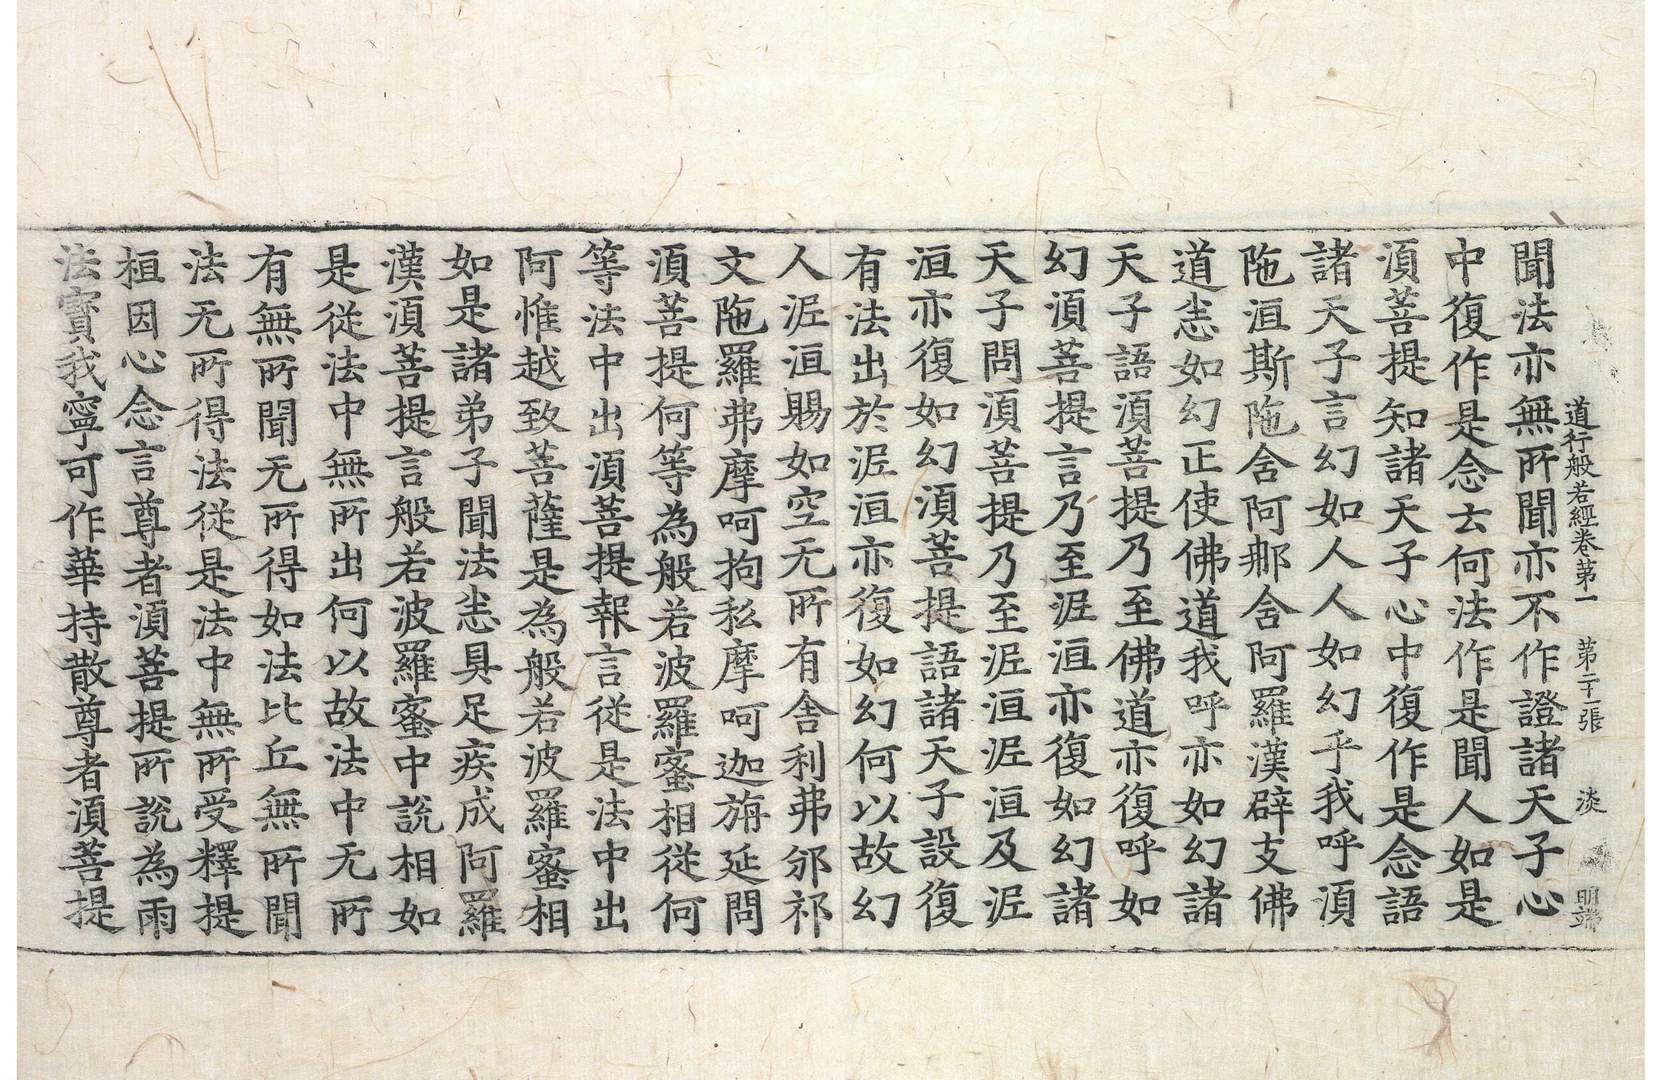 道行般若經卷第一 第二十一張 淡 明端
聞法亦無所聞亦不作證諸天子心
中復作是念云何法作是聞人如是
湏菩提知諸天子心中復作是念語
諸天子言幻如人人如幻乎我呼湏
陁洹斯陁含阿𨚗含阿羅漢辟支佛
道悉如幻正使佛道我呼亦如幻諸
天子語湏菩提乃至佛道亦復呼如
幻湏菩提言乃至泥洹亦復如幻諸
天子問湏菩提乃至泥洹泥洹及泥
洹亦復如幻湏菩提語諸天子設復
有法出於泥洹亦復如幻何以故幻
人泥洹賜如空无所有舍利弗邠祁
文陁羅弗摩呵拘私摩呵迦旃延問
湏菩提何等為般若波羅蜜相從何
等法中出湏菩提報言從是法中出
阿惟越致菩薩是為般若波羅蜜相
如是諸弟子聞法悉具足疾成阿羅
漢湏菩提言般若波羅蜜中說相如
是從法中無所出何以故法中无所
有無所聞无所得如法比丘無所聞
法无所得法從是法中無所受釋提
桓因心念言尊者湏菩提所說為雨
法寶我寧可作華持散尊者湏菩提